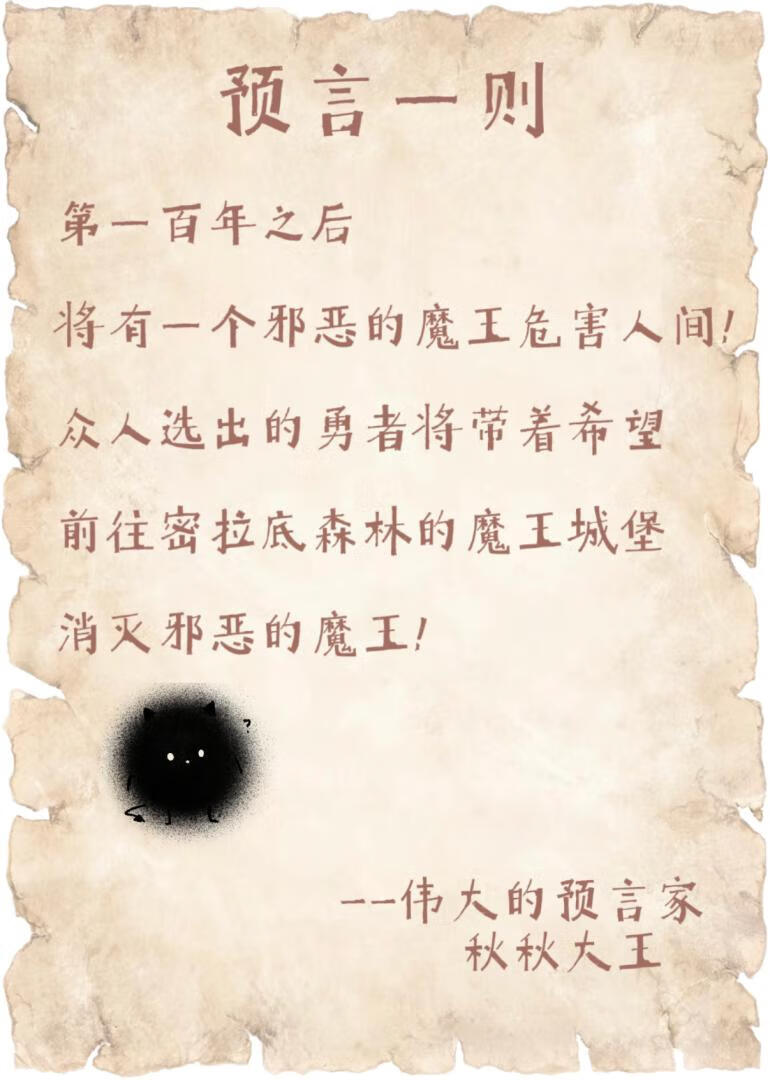 预言一则
第一百年之后
将有一个邪恶的魔王危害人间!
众人选出的勇者将带着希望
前往密拉底森林的魔王城堡
消灭邪恶的魔王!
?
--伟大的预言家
秋秋大王